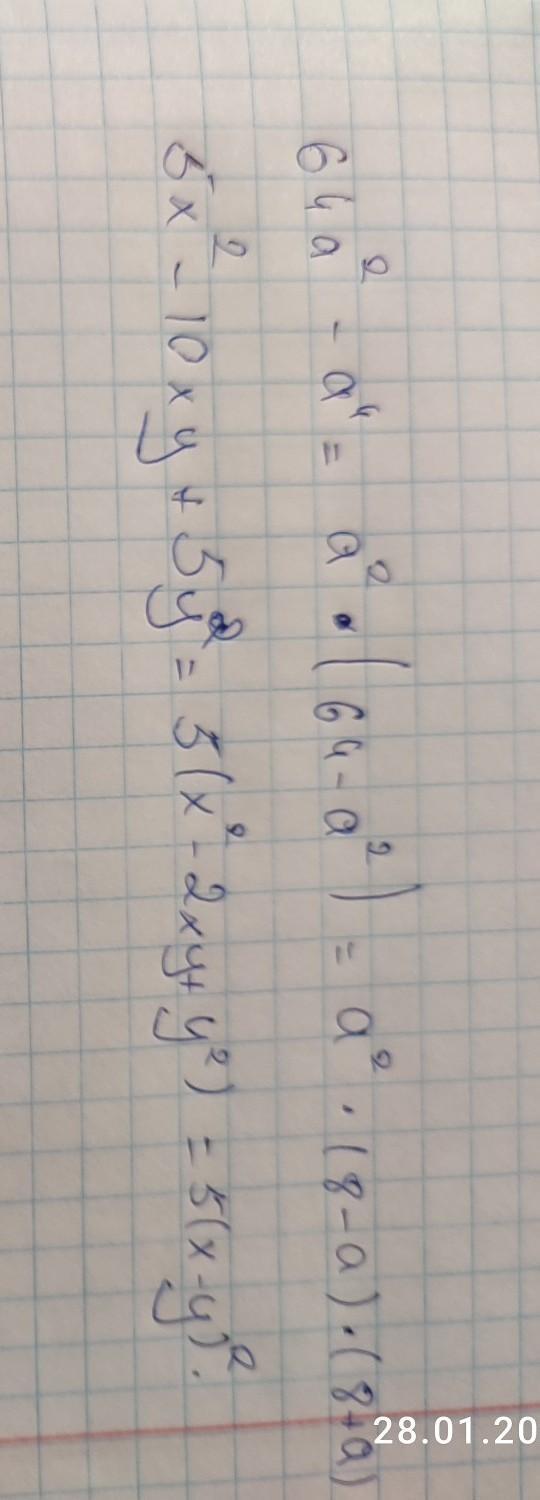 64a² - a⁴ = a² · (64 - a²) = a² · (8 - a) · (8 + a)
5x² - 10xy + 5y² = 5(x² - 2xy + y²) = 5(x - y)².
28.01.20